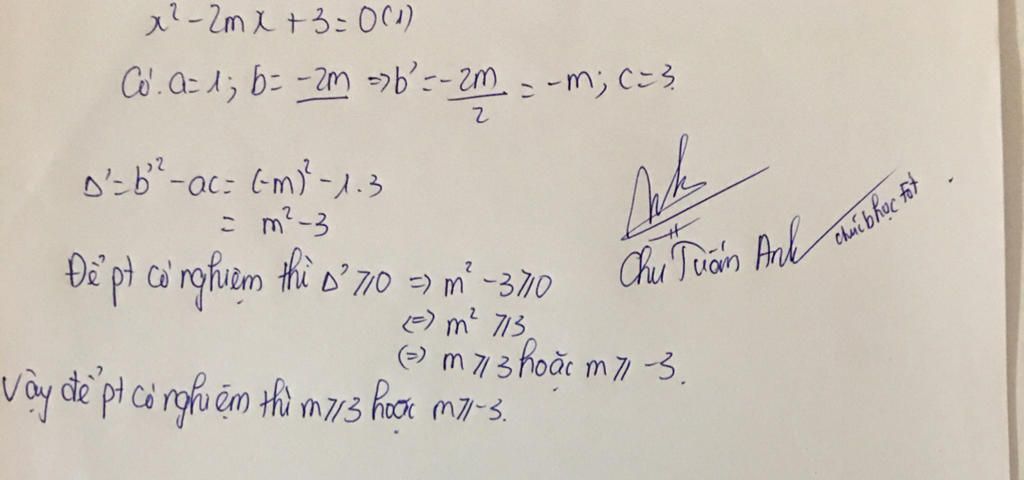 x² - 2mx + 3 = 0 (1)
Có: a = 1; b = -2m => b' = -2m/2 = -m; c = 3.
Δ' = b'² - ac = (-m)² - 1.3
= m² - 3
Để pt có nghiệm thì Δ' ≥ 0 => m² - 3 ≥ 0
<=> m² ≥ 3
<=> m ≥ 3 hoặc m ≥ -3.
Vậy để pt có nghiệm thì m ≥ 3 hoặc m ≥ -3.
Chu Tuấn Anh
chúc b học tốt